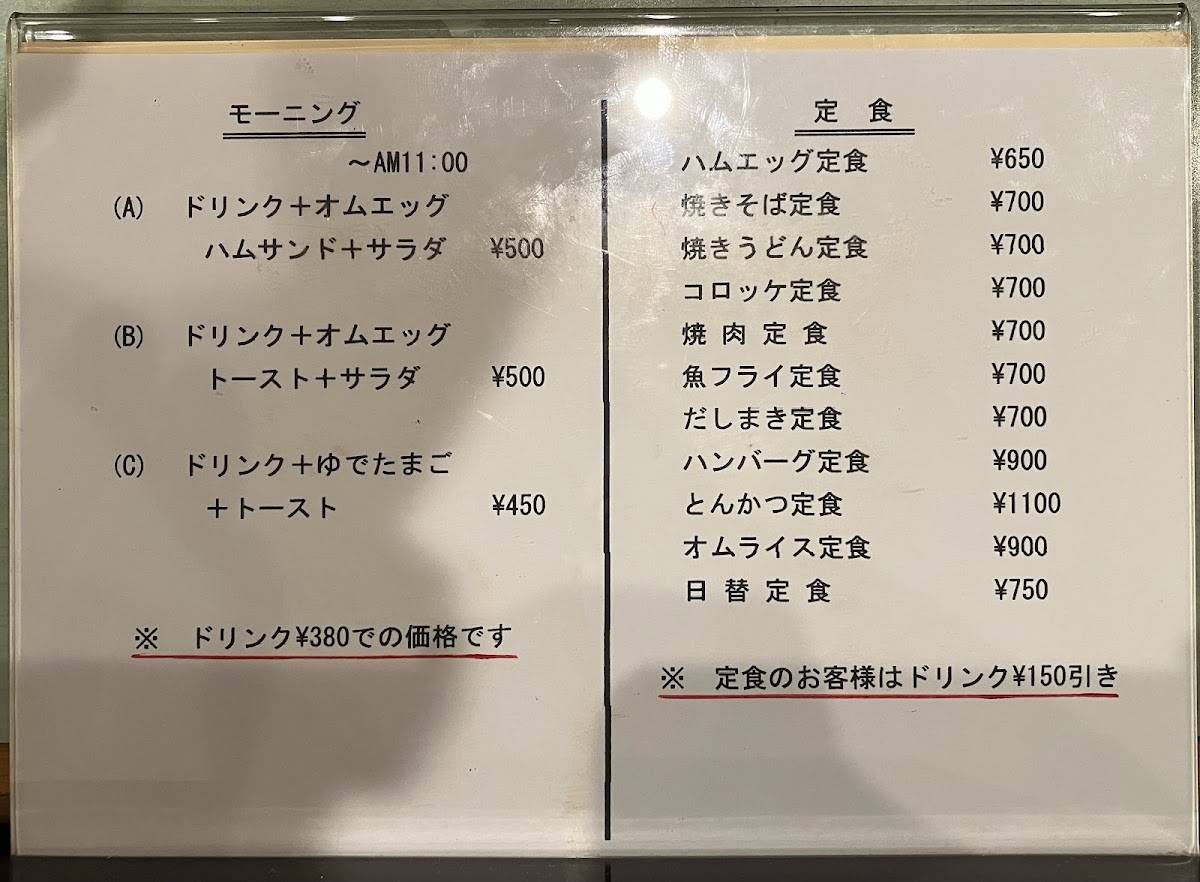 モーニング
～AM11:00
(A) ドリンク＋オムエッグ
ハムサンド＋サラダ ¥500
(B) ドリンク＋オムエッグ
トースト＋サラダ ¥500
(C) ドリンク＋ゆでたまご
＋トースト ¥450
※ ドリンク¥380での価格です
定 食
ハムエッグ定食 ¥650
焼きそば定食 ¥700
焼きうどん定食 ¥700
コロッケ定食 ¥700
焼 肉 定 食 ¥700
魚フライ定食 ¥700
だしまき定食 ¥700
ハンバーグ定食 ¥900
とんかつ定食 ¥1100
オムライス定食 ¥900
日 替 定 食 ¥750
※ 定食のお客様はドリンク¥150引き